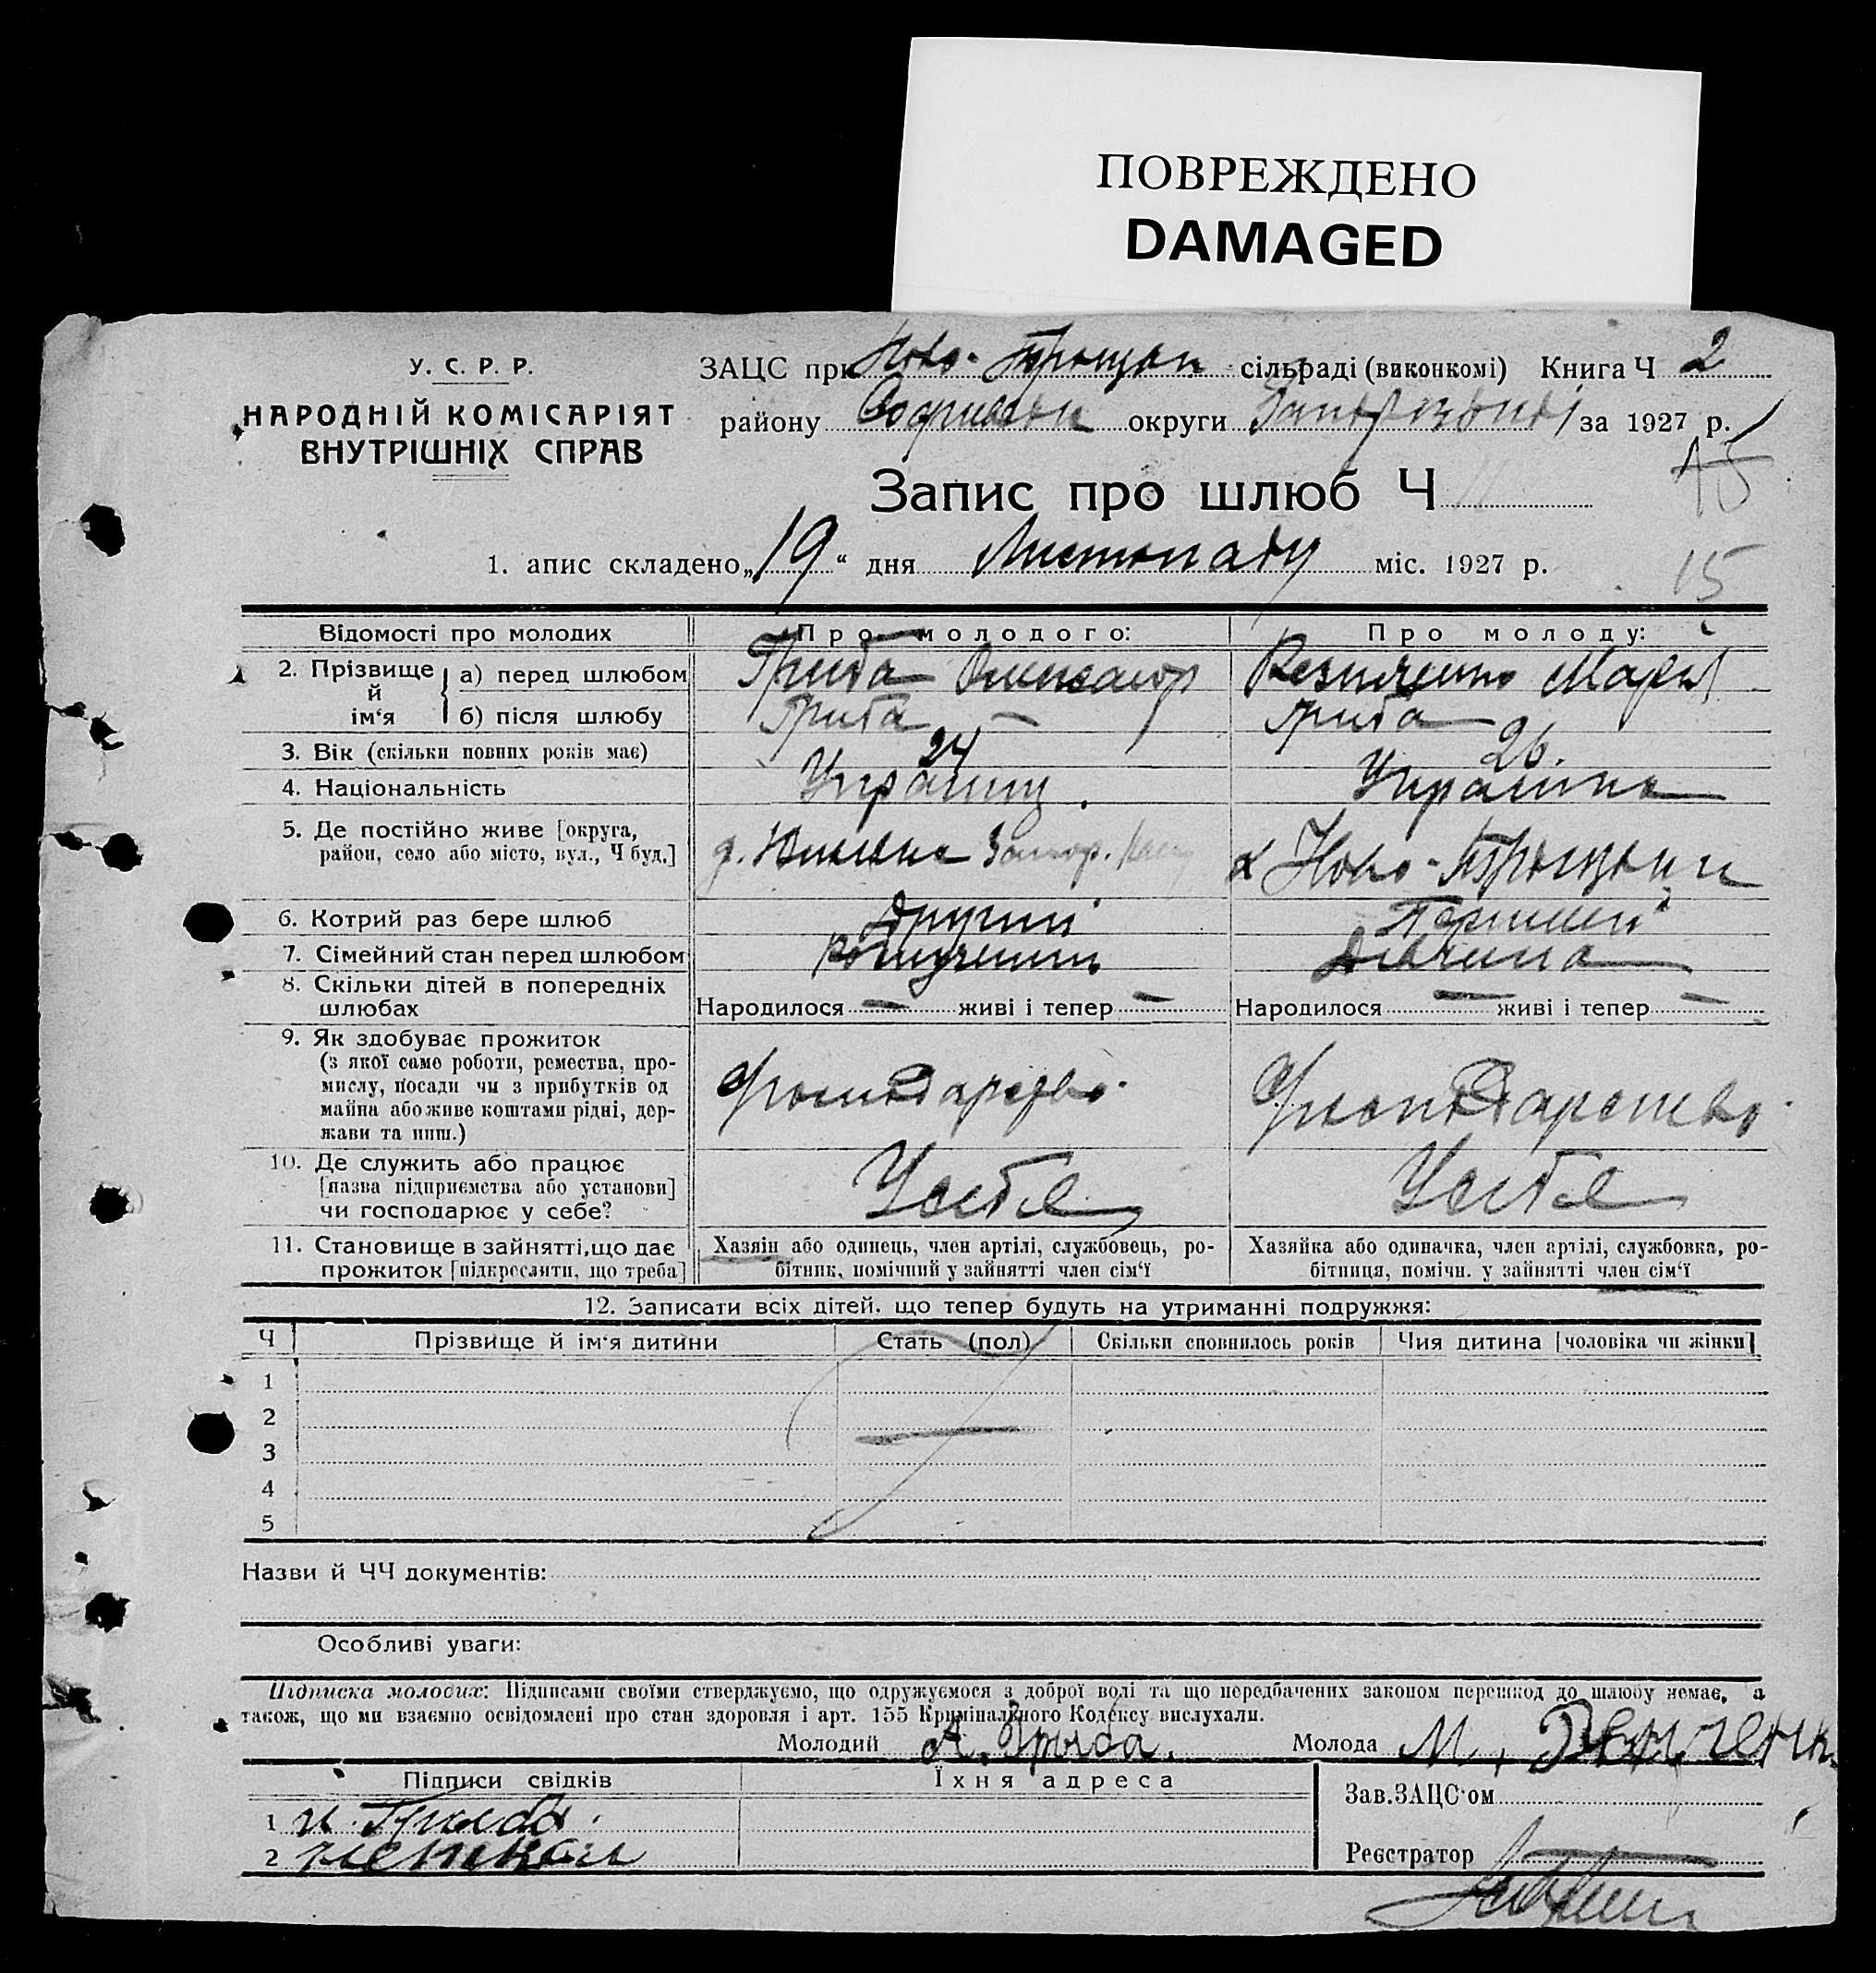 ПОВРЕЖДЕНО
DAMAGED
У. С. Р. Р.
НАРОДНІЙ КОМІСАРІЯТ
ВНУТРІШНІХ СПРАВ
ЗАЦС при Ново- сільраді (виконкомі) Книга Ч 2
району округи за 1927 р.
15
Запис про шлюб Ч
1. апис складено „19“ дня Листопаду міс. 1927 р.
15
Відомості про молодих Про молодого: Про молоду:
2. Прізвище й ім‘я
а) перед шлюбом Гриба Марія
б) після шлюбу Гриба — Гриба
3. Вік (скільки повних років має) 24 26.
4. Національність Украінец. Украінка
5. Де постійно живе [округа, район, село або місто, вул., Ч буд.] Ново-
6. Котрий раз бере шлюб Другий Перший
7. Сімейний стан перед шлюбом Розлучений Дівчина
8. Скільки дітей в попередніх шлюбах Народилося — живі і тепер — Народилося — живі і тепер —
9. Як здобуває прожиток
(з якої саме роботи, ремества, про-
мислу, посади чи з прибутків од
майна або живе коштами рідні, дер-
жави та инш.)
Господарство
10. Де служить або працює
[назва підприємства або установи]
чи господарює у себе?
У себе У себе
11. Становище в зайнятті, що дає
прожиток [підкреслити, що треба]
Хазяїн або одинець, член артілі, службовець, ро-
бітник, помічний у зайнятті член сім‘ї
Хазяйка або одиначка, член артілі, службовка, ро-
бітниця, помічн. у зайнятті член сім‘ї
12. Записати всіх дітей, що тепер будуть на утриманні подружжя:
Ч Прізвище й ім‘я дитини Стать (пол) Скільки сповнилось років Чия дитина [чоловіка чи жінки]
1
2 —
3
4
5
Назви й ЧЧ документів:
Особливі уваги:
Підписка молодих: Підписами своїми стверджуємо, що одружуємося з доброї волі та що передбачених законом перешкод до шлюбу немає, а
також, що ми взаємно освідомлені про стан здоровля і арт. 155 Кримінального Кодексу вислухали.
Молодий А. Грыба. Молода М.
Підписи свідків Їхня адреса
Зав.ЗАЦС‘ом
1
Реєстратор
2